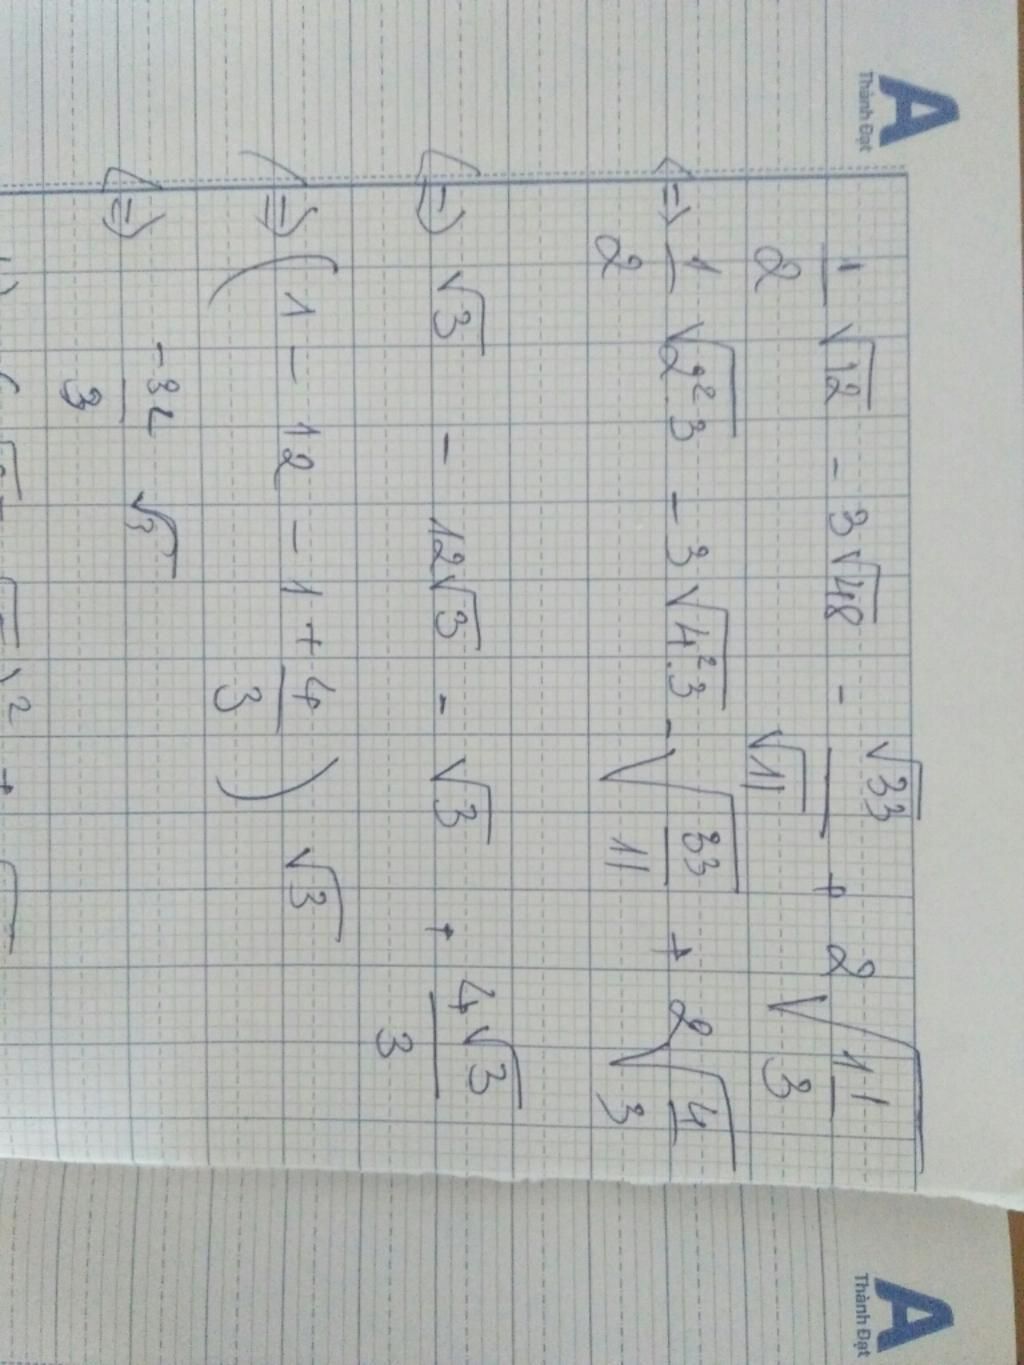 A
Thành Đạt
1/2 √12 - 3√48 - √33/√11 + 2√(1 1/3)
<=> 1/2 √(2².3) - 3√(4².3) - √(33/11) + 2√(4/3)
<=> √3 - 12√3 - √3 + 4√3/3
<=> (1 - 12 - 1 + 4/3) √3
<=> -32/3 √3
A
Thành Đạt